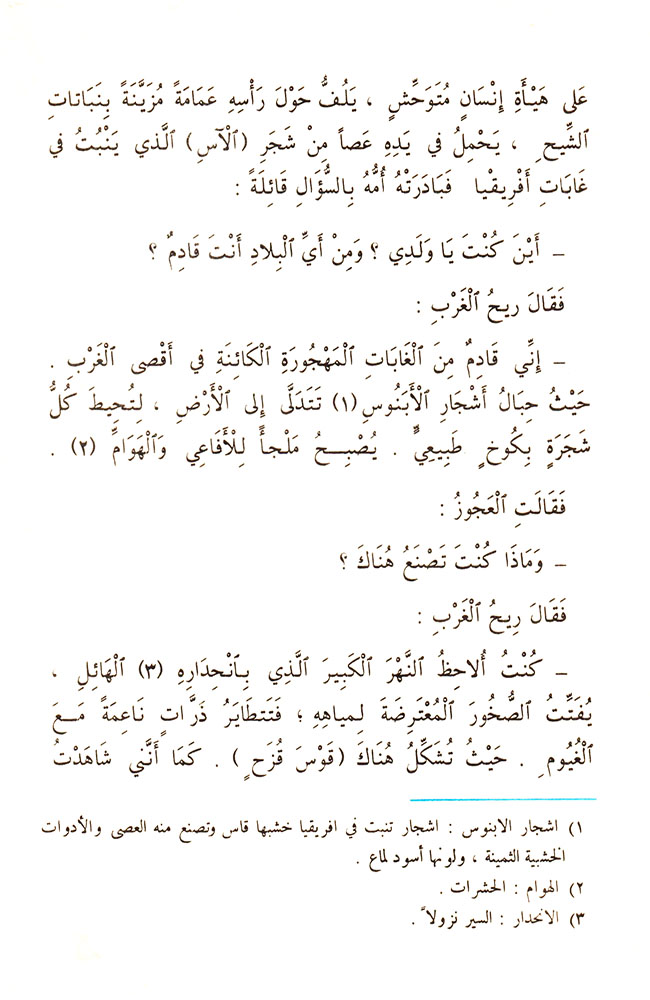 عَلى هَيْأَةِ إِنْسَانٍ مُتَوَحِّشٍ ، يَلُفُّ حَوْلَ رَأْسِهِ عَمَامَةً مُزَيَّنَةً بِنَبَاتاتِ
ٱلشِّيحِ ، يَحْمِلُ في يَدِهِ عَصاً مِنْ شَجَرِ (ٱلْآسِ) ٱلَّذي يَنْبُتُ في
غَابَاتِ أَفْرِيقْيا فَبَادَرَتْهُ أُمُّهُ بِالسُّؤَالِ قَائِلَةً :
– أَيْنَ كُنْتَ يَا وَلَدِي ؟ وَمِنْ أَيِّ ٱلْبِلادِ أَنْتَ قَادِمٌ ؟
فَقَالَ ريحُ ٱلْغَرْبِ :
– إِنِّي قَادِمٌ مِنَ ٱلْغَابَاتِ ٱلْمَهْجُورَةِ ٱلْكَائِنَةِ في أَقْصى ٱلْغَرْبِ .
حَيْثُ حِبَالُ أَشْجَارِ ٱلْأَبَنُوسِ (١) تَتَدَلَّى إِلى ٱلْأَرْضِ ، لِتُحِيطَ كُلُّ
شَجَرَةٍ بِكُوخٍ طَبِيعِيٍّ . يُصْبِحُ مَلْجأً لِلْأَفَاعِي وَٱلْهَوَامِّ (٢) .
فَقَالَتِ ٱلْعَجُوزُ :
– وَمَاذَا كُنْتَ تَصْنَعُ هُنَاكَ ؟
فَقَالَ رِيحُ ٱلْغَرْبِ :
– كُنْتُ أُلاحِظُ ٱلنَّهْرَ ٱلْكَبِيرَ ٱلَّذِي بِٱنْحِدَارِهِ (٣) ٱلْهَائِلِ ،
يُفَتِّتُ ٱلصُّخُورَ ٱلْمُعْتَرِضَةَ لِمِياهِهِ ؛ فَتَتَطَايَرُ ذَرَّاتٍ نَاعِمَةً مَعَ
ٱلْغُيُومِ . حَيْثُ تُشَكِّلُ هُنَاكَ (قَوْسَ قُزَحٍ) . كَمَا أَنَّني شَاهَدْتُ
١) اشجار الابنوس : اشجار تنبت في افريقيا خشبها قاس وتصنع منه العصى والأدوات
الخشبية الثمينة ، ولونها أسود لماع .
٢) الهوام : الحشرات .
٣) الانحدار : السير نزولاً .